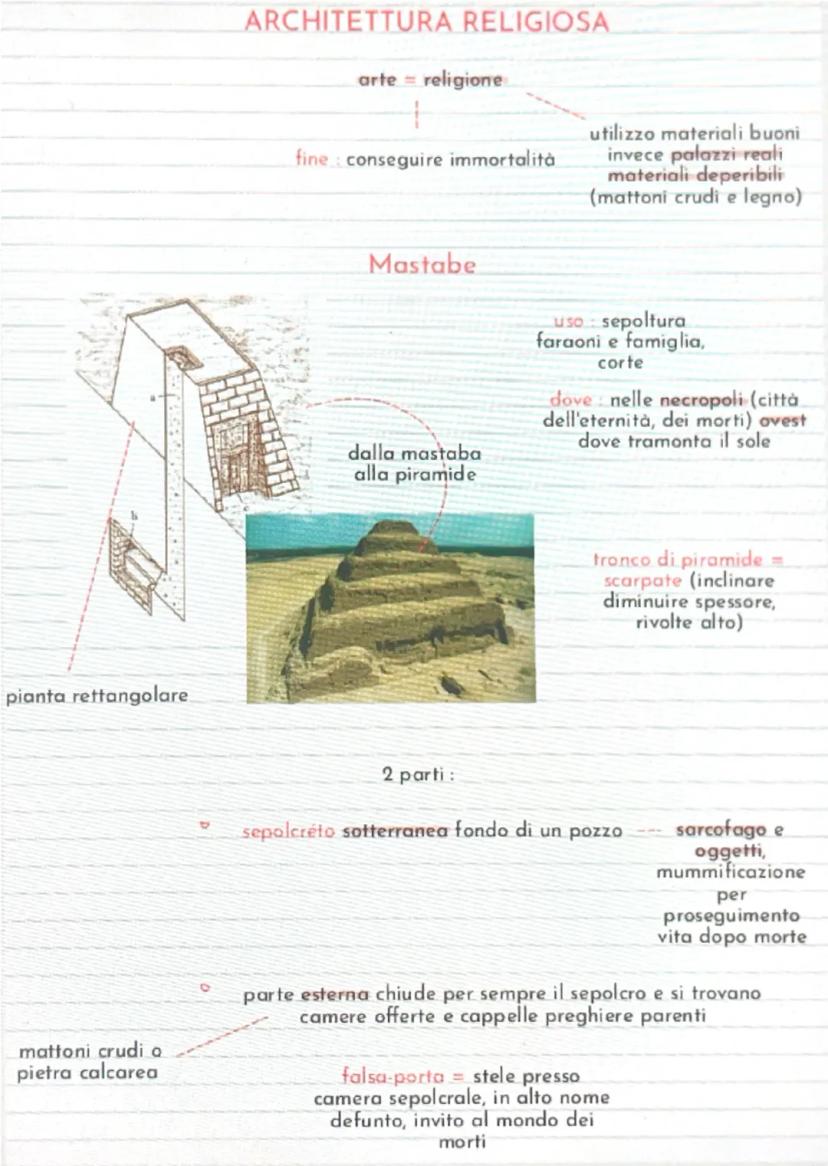 ARCHITETTURA RELIGIOSA
arte = religione
fine : conseguire immortalità
utilizzo materiali buoni
invece palazzi reali
materiali deperibili
(mattoni crudi e legno)
Mastabe
uso : sepoltura
faraoni e famiglia,
corte
dove : nelle necropoli (città
dell'eternità, dei morti) ovest
dove tramonta il sole
a
dalla mastaba
alla piramide
b
tronco di piramide =
scarpate (inclinare
diminuire spessore,
rivolte alto)
pianta rettangolare
2 parti :
sepolcréto sotterranea fondo di un pozzo --- sarcofago e
oggetti,
mummificazione
per
proseguimento
vita dopo morte
parte esterna chiude per sempre il sepolcro e si trovano
camere offerte e cappelle preghiere parenti
mattoni crudi o
pietra calcarea
falsa-porta = stele presso
camera sepolcrale, in alto nome
defunto, invito al mondo dei
morti